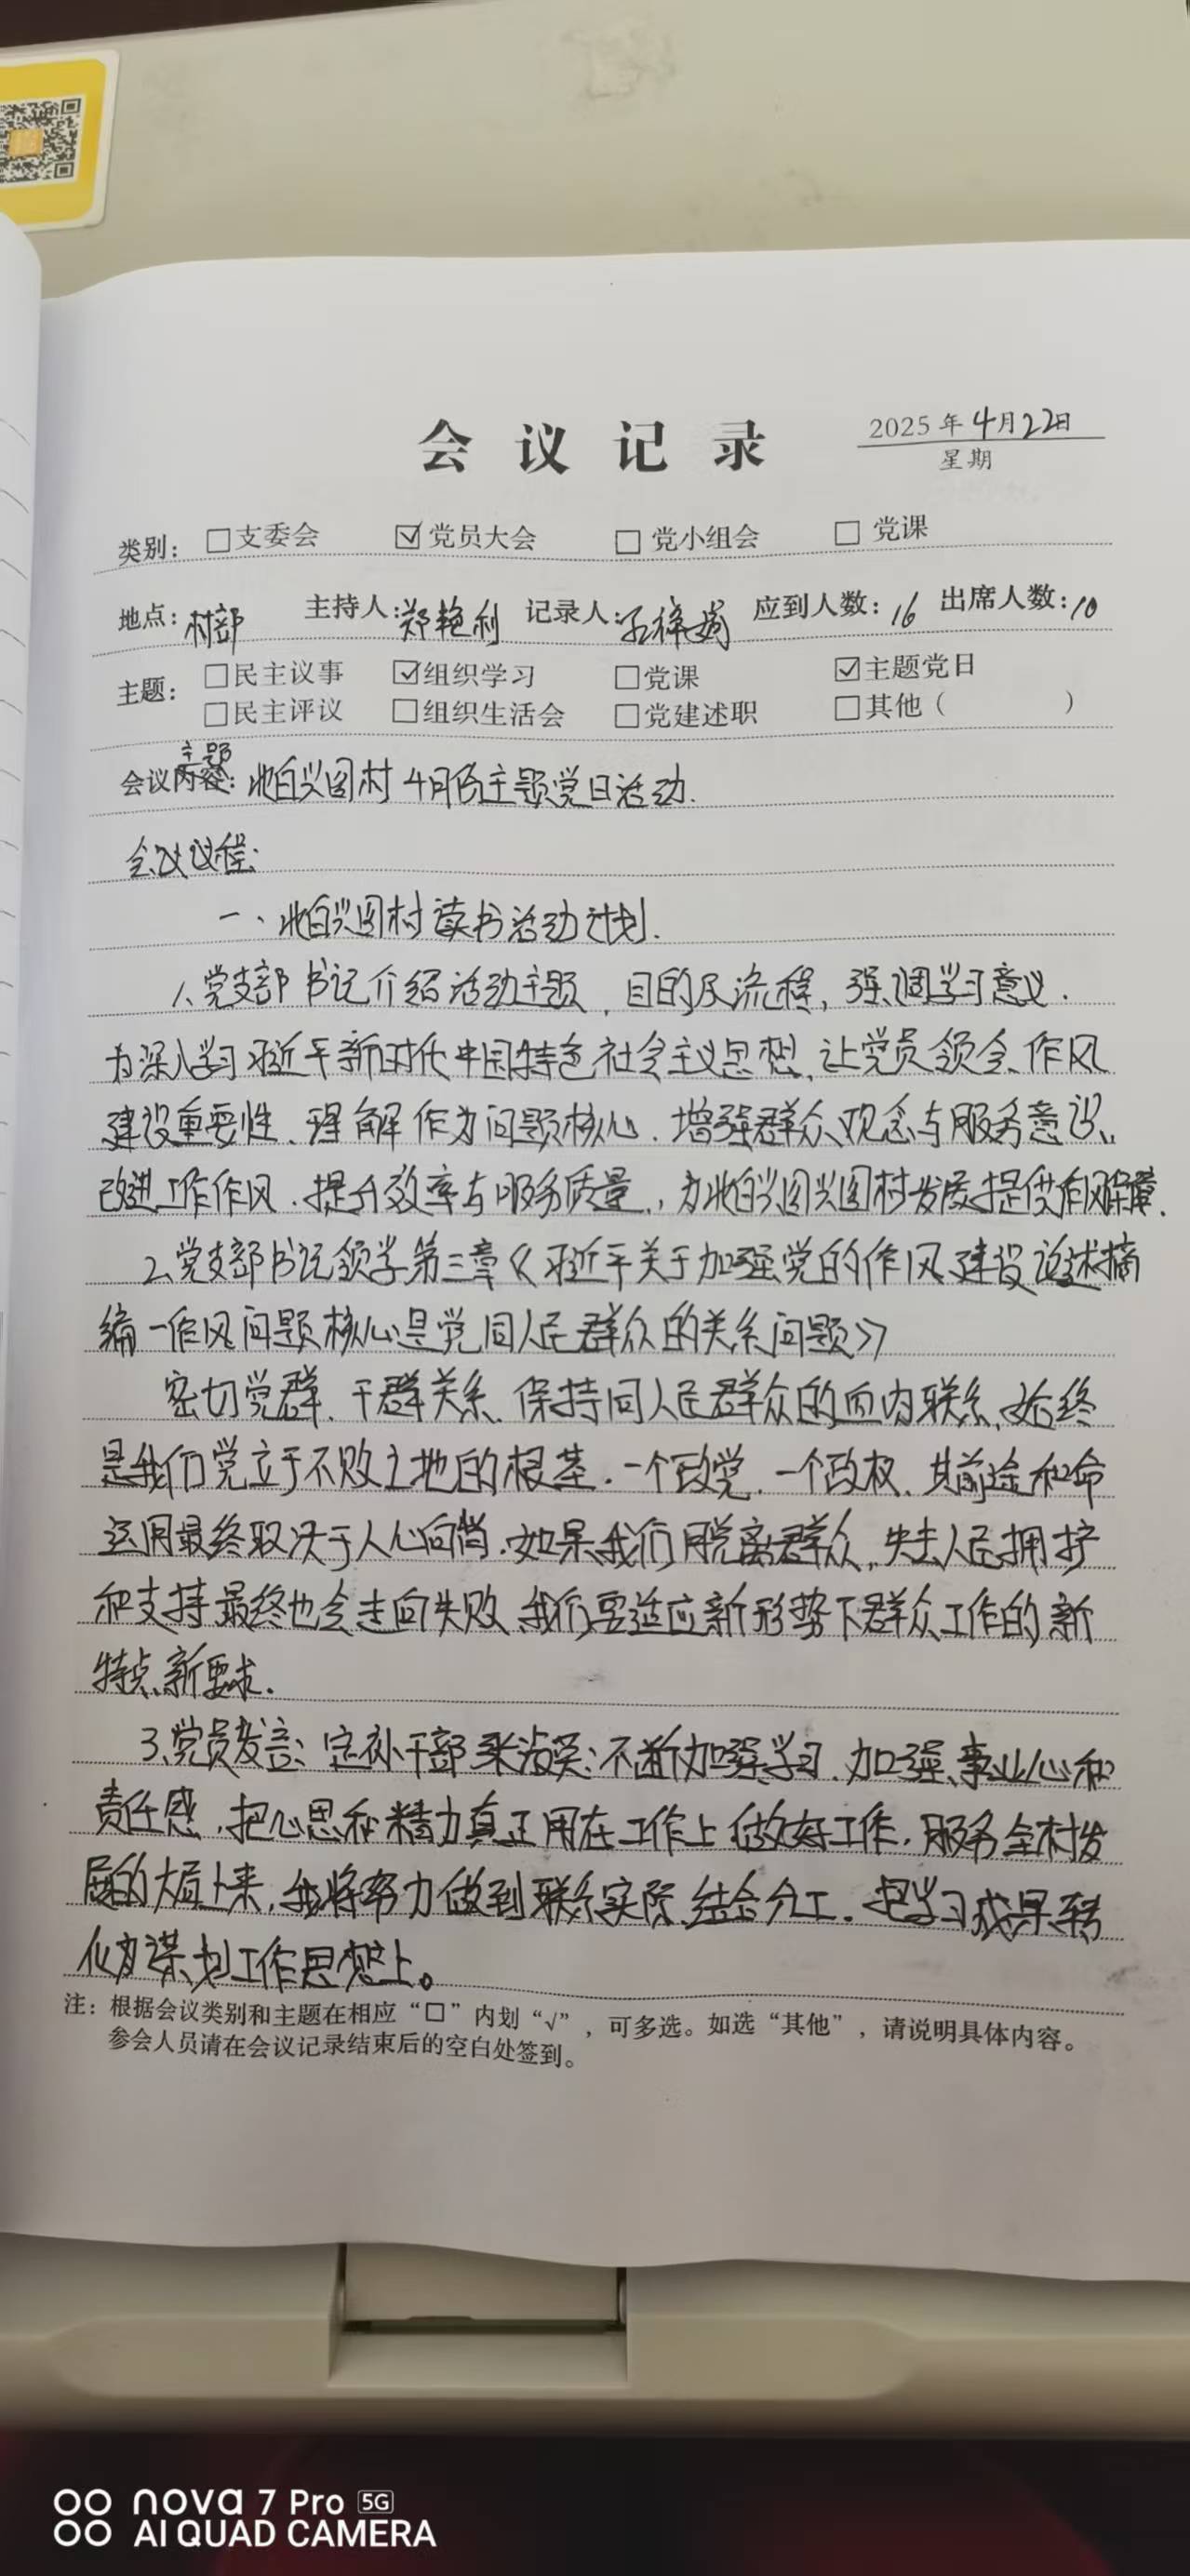 会议记录
2025年4月22日
星期
类别： □支委会 ☑党员大会 □党小组会 □党课
地点：村部 主持人：郑艳利 记录人： 应到人数：16 出席人数：10
主题： □民主议事 ☑组织学习 □党课 ☑主题党日
□民主评议 □组织生活会 □党建述职 □其他（ ）
主题
会议内容：北白兴图村4月份主题党日活动.
会议议程：
一、北白兴图村读书活动计划.
1、党支部书记介绍活动主题，目的及流程，强调学习意义.
为深入学习习近平新时代中国特色社会主义思想，让党员领会作风
建设重要性、理解作为问题核心.增强群众观念与服务意识，
改进工作作风.提升效率与服务质量，为北白兴图兴图村发展提供作风保障.
2、党支部书记领学第三章《习近平关于加强党的作风建设论述摘
编一作风问题核心是党同人民群众的关系问题》
密切党群、干群关系、保持同人民群众的血肉联系，始终
是我们党立于不败之地的根基.一个政党，一个政权、其前途和命
运用最终取决于人心向背.如果我们脱离群众，失去人民拥护
和支持最终也会走向失败、我们要适应新形势下群众工作的新
特点、新要求.
3、党员发言：定补干部 不断加强学习.加强事业心和
责任感，把心思和精力真正用在工作上做好工作，服务全村发
展的大局上来，我将努力做到联系实际、结合分工.把学习成果转
化为谋划工作思想上。
注：根据会议类别和主题在相应“口”内划“√”，可多选。如选“其他”，请说明具体内容。
参会人员请在会议记录结束后的空白处签到。
nova 7 Pro 5G
AI QUAD CAMERA